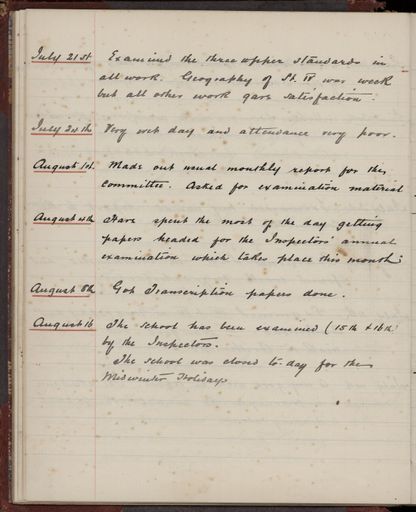 July 21st. Examined the three upper standards in
all work. Geography of St. IV was weak
but all other work gave satisfaction.
July 24th Very wet day and attendance very poor.
August 1st. Made out usual monthly report for the
committee. Asked for examination material
August 4th Have spent the most of the day getting
papers headed for the Inspectors' annual
examination which takes place this month.
August 8th Got Transcription papers done.
August 16 The school has been examined (15th & 16th)
by the Inspectors.
The school was closed to-day for the
Midwinter Holidays